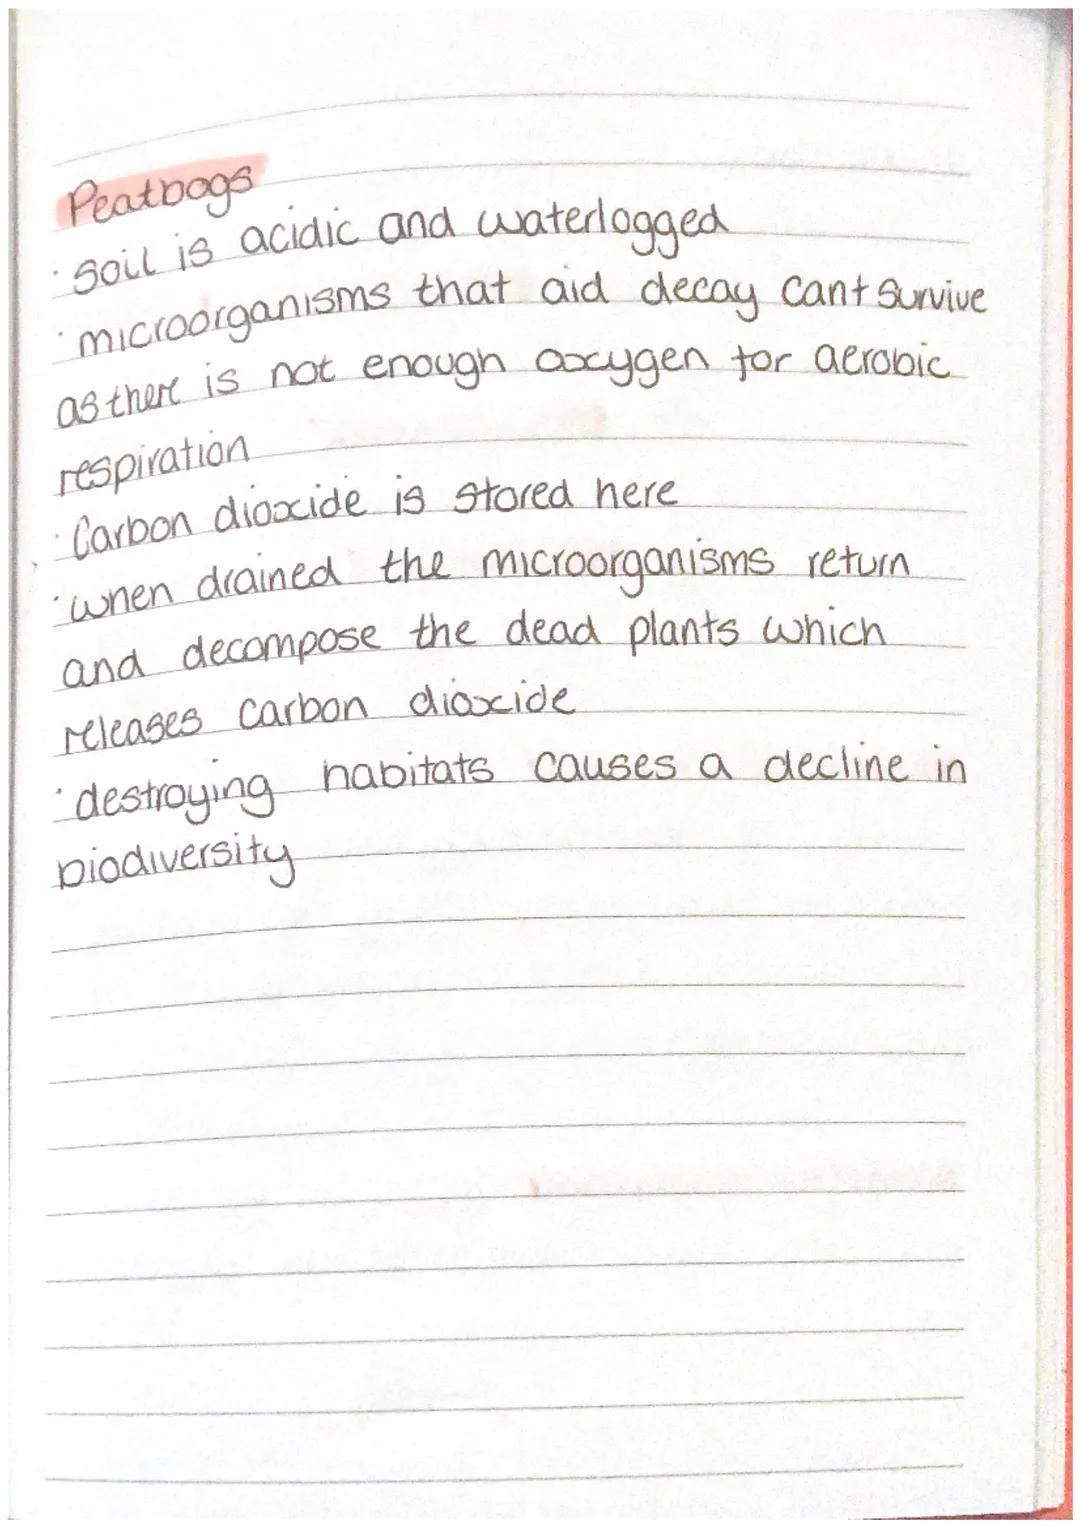 Peatbogs
· soil is acidic and waterlogged
· microorganisms that aid decay cant survive
as there is not enough oxygen for aerobic
respiration
· Carbon dioxide is stored here
· when drained the microorganisms return
and decompose the dead plants which
releases carbon dioxide
· destroying habitats causes a decline in
biodiversity